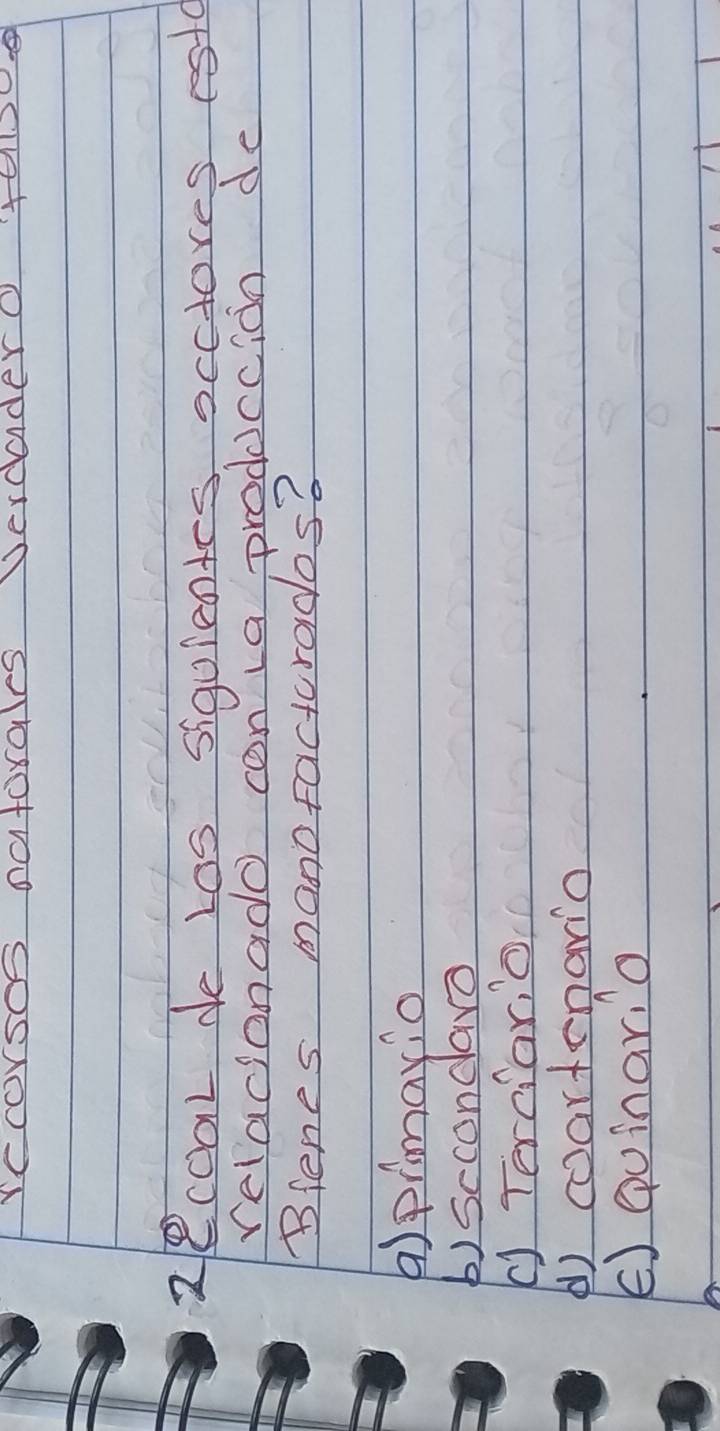 recorsos natorales verdadero falso.
2 ¿cual de Los siguientes sectores esta
relacionado con La producción de
Bienes manofacturados?
a) primario
b) Secondaro
c) Terciario
d) coartenario
e) Quinario